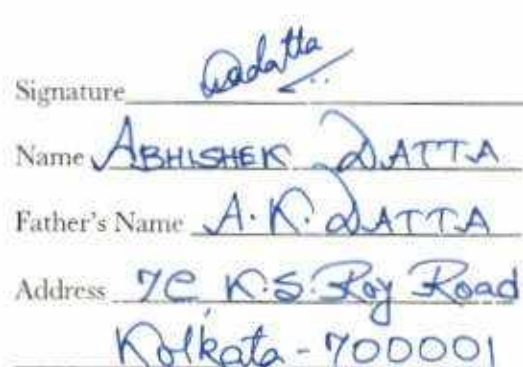 Signature Qadatta
Name ABHISHEK DATTA
Father's Name A. K. DATTA
Address 7C K.S. Roy Road
Kolkata - 700001